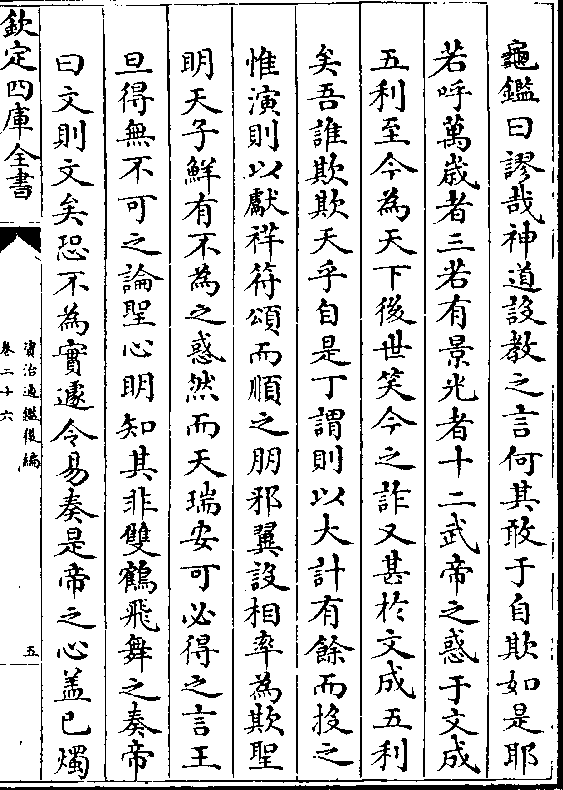 龜鑑曰謬哉神道設教之言何其敢于自欺如是耶
若呼萬歲者三若有景光者十二武帝之惑于文成
五利至今為天下後世笑今之詐又甚於文成五利
矣吾誰欺欺天乎自是丁謂則以大計有餘而投之
惟演則以獻祥符頌而順之朋邪翼設相率為欺聖
明天子鮮有不為之惑然而天瑞安可必得之言王
旦得無不可之論聖心明知其非雙鶴飛舞之奏帝
曰文則文矣恐不為實遽令易奏是帝之心盖已燭
欽定四庫全書
資治通鑑後編
卷二十六
五